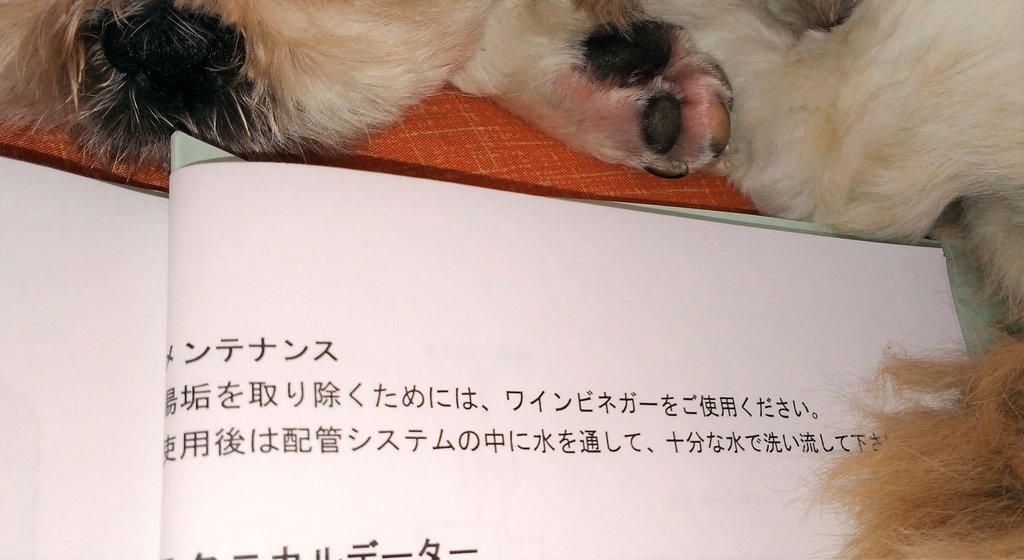 メンテナンス
湯垢を取り除くためには、ワインビネガーをご使用ください。
使用後は配管システムの中に水を通して、十分な水で洗い流して下さ
テクニカルデーター